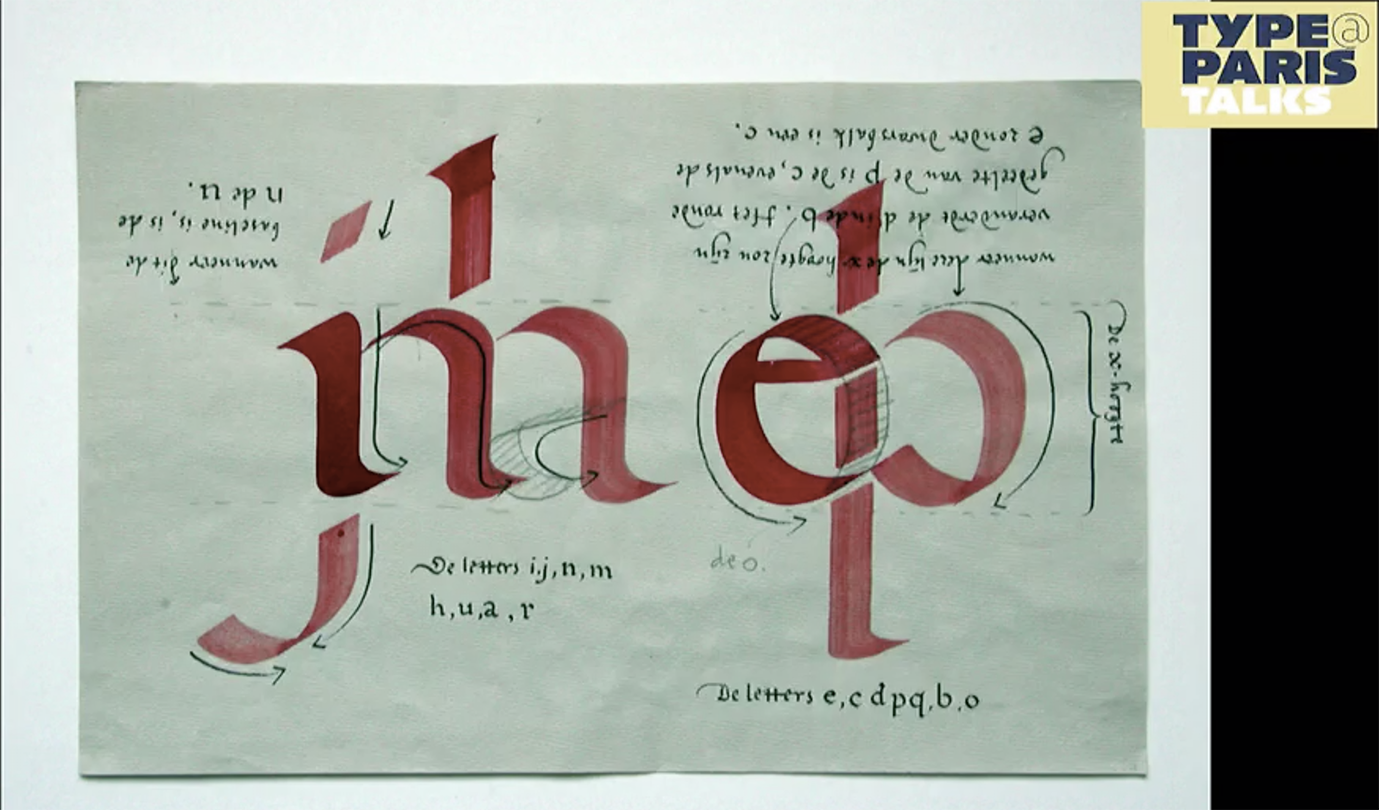 TYPE@
PARIS
TALKS
wanneer dit de
baseline is, is de
n de u.
wanneer deze lijn de x-hoogte zou zijn
veranderdt de d in de b. Het ronde
gedeelte van de p is de c, evenals de
e zonder dwarsbalk is een c.
De x-hoogte
de o.
De letters i.j, n, m
h, u, a, r
De letters e, c d p q, b, o